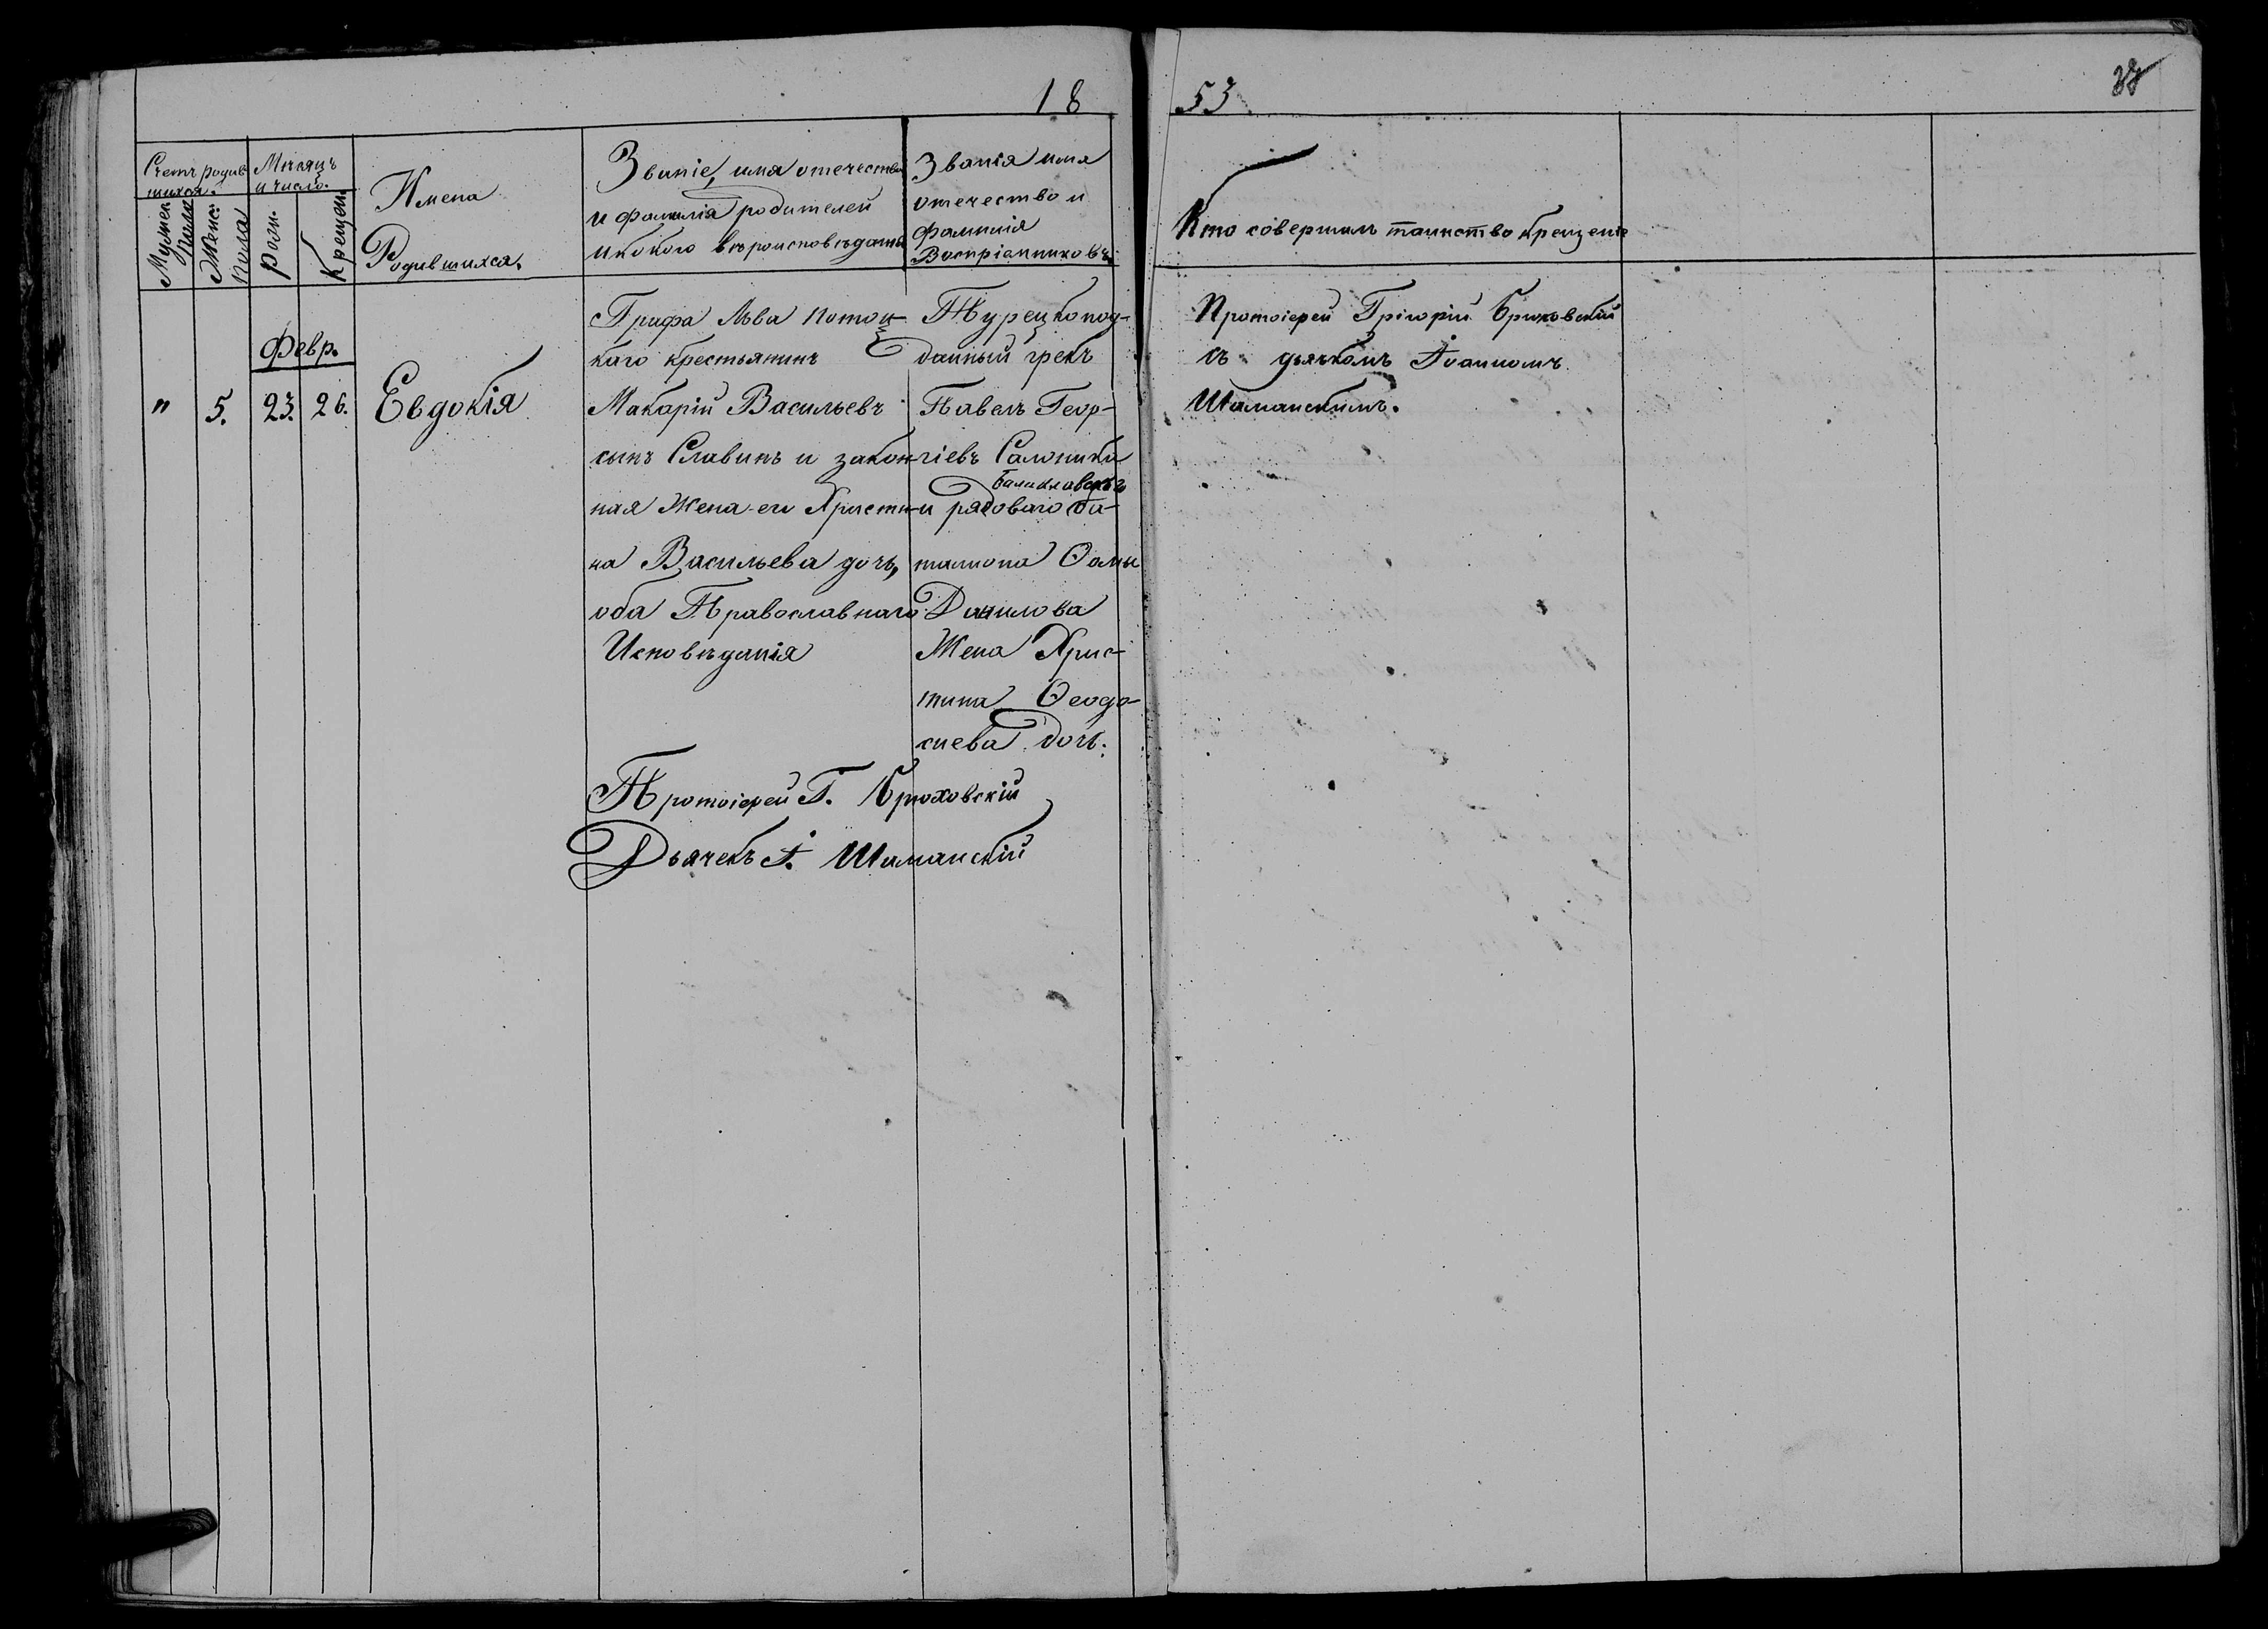 18 53
Счетъ родив
шихся.
Мѣсяцъ
и число.
Мужеск.
Пола
Женс.
Пола
Рож.
Крещен.
Имена
Родившихся.
Званіе, имя отечество
и фамилія родителей
и какого вѣроисповѣданія
Званія имя
отечество и
фамилія
Воспріемниковъ.
Кто совершилъ таинство Крещенія
Февр.
" 5. 23. 26. Евдокія
Графа Льва Потоц-
каго крестьянинъ
Макарій Васильевъ
сынъ Славинъ и закон-
ная Жена его Христи-
на Васильева дочь,
оба Православнаго
Исповѣданія
Турецкопод-
данный грекъ
Павелъ Геор-
гіевъ Салоники
Балаклавскаго
и рядоваго ба-
таліона Ѳомы
Данилова
Жена Хрис-
тина Ѳеодо-
сиева дочь.
Протоіерей Грігорій Брюховскій
съ дьячкомъ Іоанномъ
Шаманскимъ.
Протоіерей Г. Брюховскій
Дьячекъ І. Шаманскій